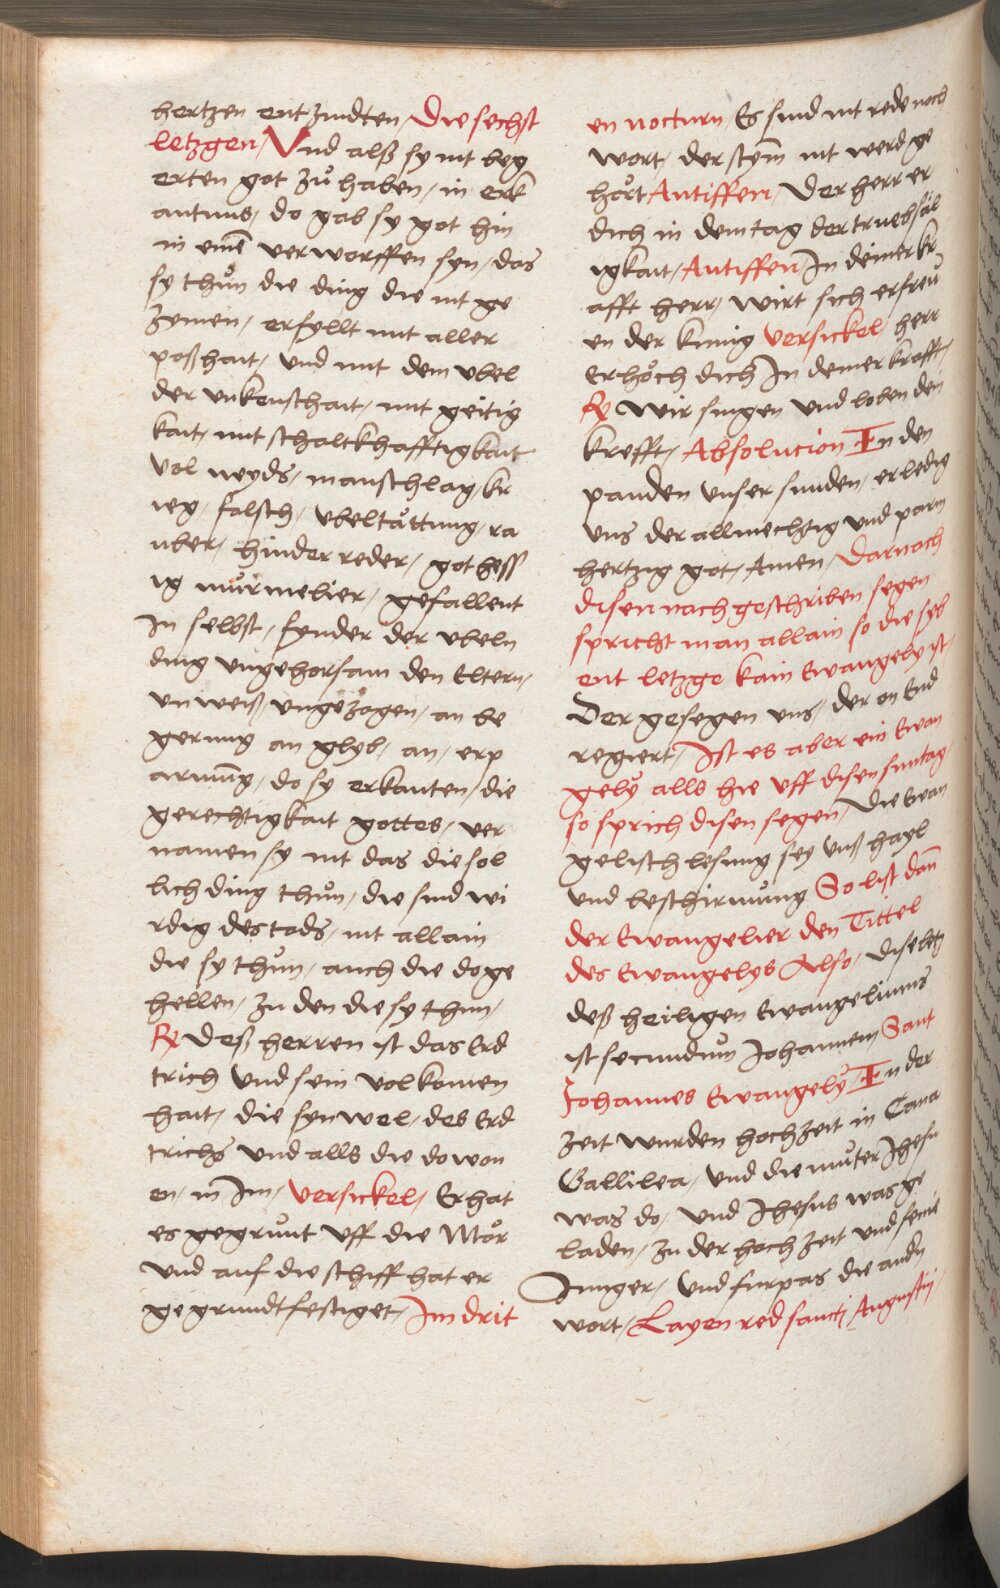 hertzen entzindten, Die sechst
letzgen, Vnd alß sy nit beg
erten got zů haben, in erk
antnus, do gab sy got hin
in einē verworffen syn, das
sy thůn die ding die nit ge
zymen, erfyllt mit aller
poßhait, vnd mit dem vbel
der vnkeuschait, mit geitig
kait, mit schalckhafftigkait
vol neyds, manschlag, kr
ieg, falsch, vbeltåttung, ra
uber, hinderreder, got hess
ig můrmelier, gefallent
in selbst, fynder der vbeln
ding vngehorsam den Eltern,
vnweiß, vngezogen, an be
gerung an glyb, an, erp
armūg, do sy erkanten, die
gerechtigkait gottes, ver
namen sy nit das die sol
lich ding thůn, die sind wi
rdig des tods, nit allain
die sy thůn, auch die do ge
hellen, zu den die sy thun,
R Deß herren ist das Erd
trich vnd sein volkomen
hait, die synwel, des Erd
trichs vnd alls die do won
en, in Im, versickel, Er hat
es gegrůnt vff die Mör
vnd auf die schiff hat er
gegrundtfestiget, Im drit
en nocturn Es sind nit rede noch
wort, der stym̄ nit werd ge
hört Antiffen, Der herr er
dich in dem tag der truebsäl
igkait, Antiffen In deiner kr
afft herr, wirt sich erfreü
en der kunig versickel, herr
Erhöch dich In deiner krafft,
R Wir singen vnd loben dein
krefft, Absolucion In den
panden vnser sunden, erledig
vns der allmechtig vnd parm
hertzig got, Amen, Darnach
disen nachgeschriben segen
spricht man allain so die syb
ent letzge kain Ewangely ist,
Der gesegen vns, der on End
regiert, Ist es aber ein Ewan
gely alls hie vff disen suntag,
so sprich disen segen, Die Ewan
gelisch lesung sey vnß hayl
vnd beschirmūng So list dañ
der Ewangelier den Tittel
des Ewangelys Also, dise letz
deß heiligen Ewangeliums
ist secundum Johannem Sant
Johannes Ewangely, In der
zeit wurden hochzeit in Cana
Gallilea, vnd die můter Jhesu
was do, vnd Jhesus was ge
laden, zu der hochzeit vnd seine
Junger, vnd furpas die andn
wort, Layen red sancti Augustij,